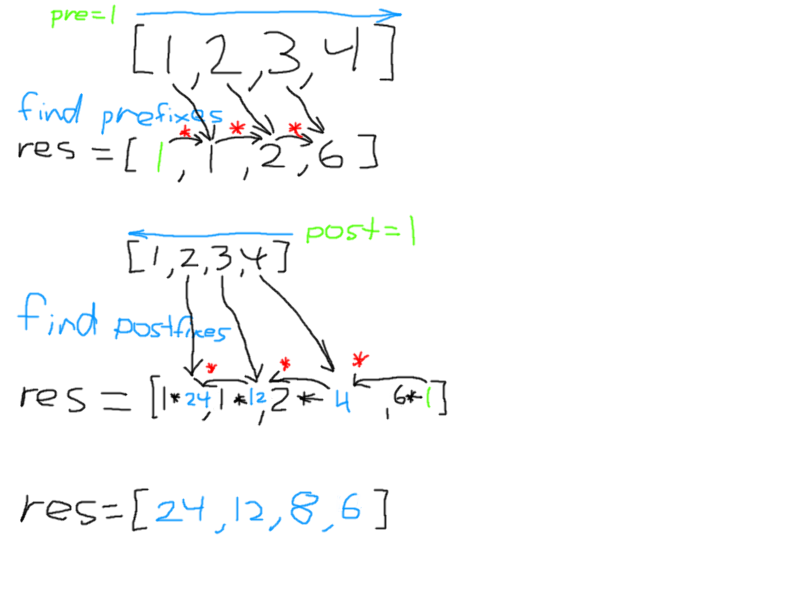 pre=1
[1,2,3,4]
find prefixes
* * *
res=[1,1,2,6]
post=1
[1,2,3,4]
find postfixes
* * *
res=[1*24,1*12,2*4,6*1]
res=[24,12,8,6]